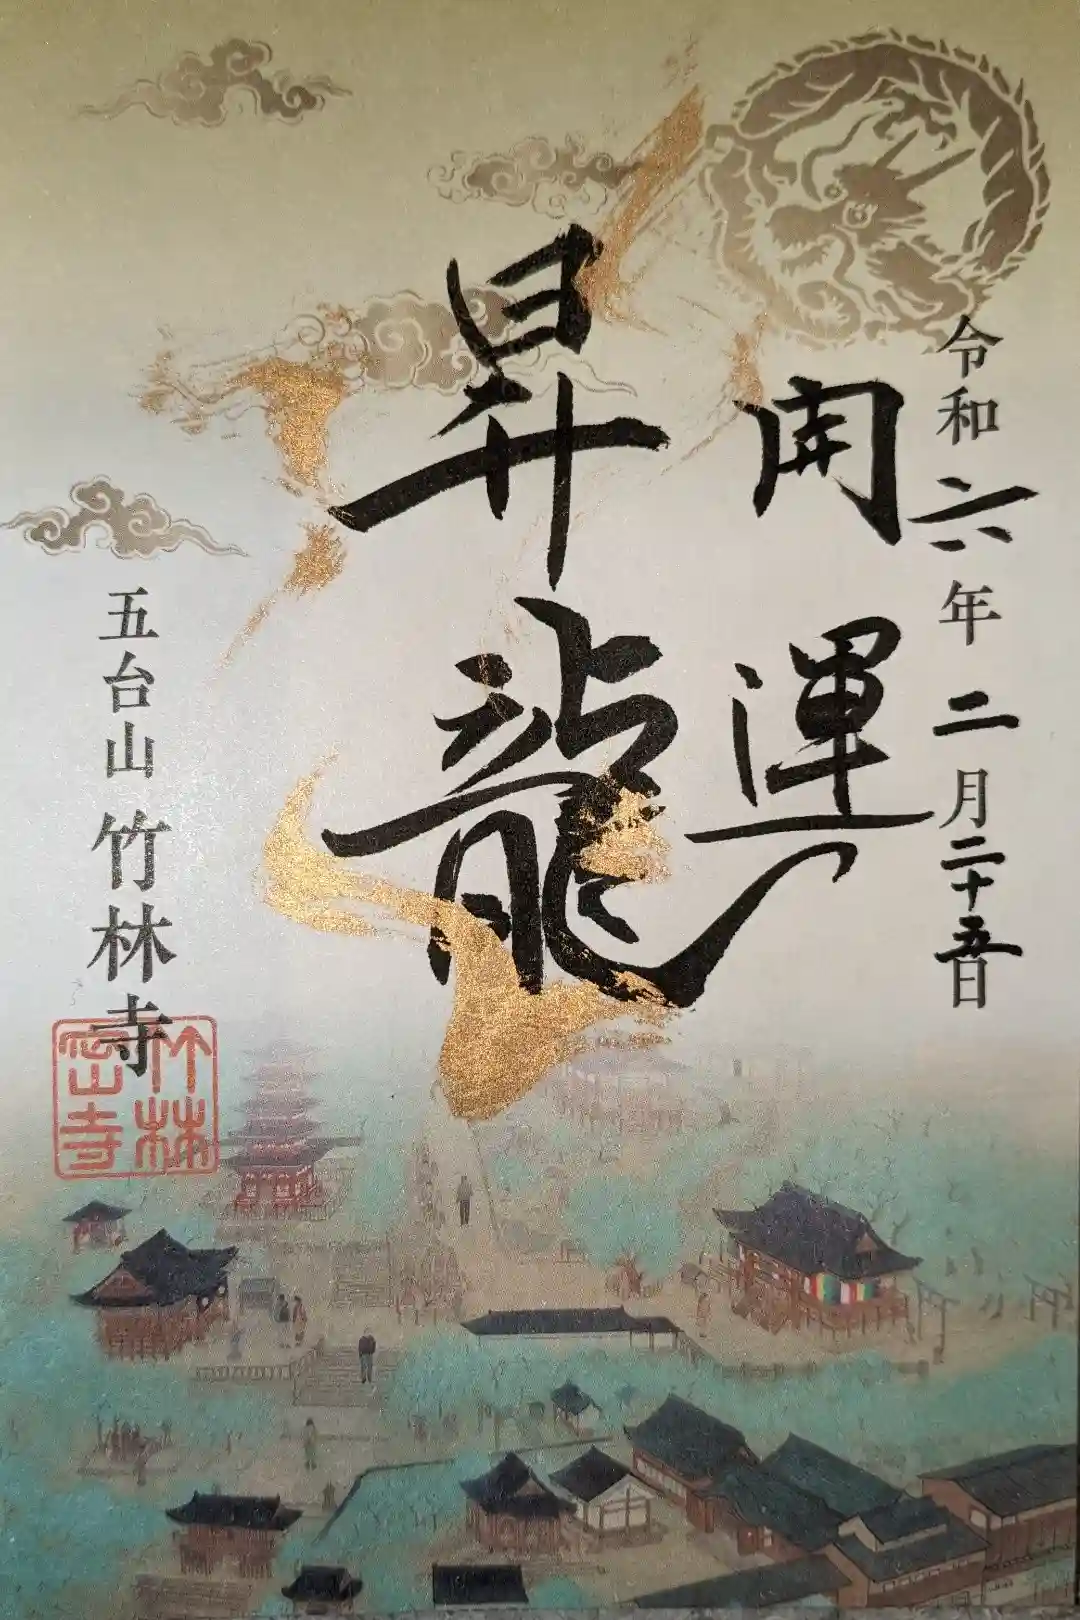 令和六年二月二十五日
開運
昇龍
五台山 竹林寺
竹林
密寺